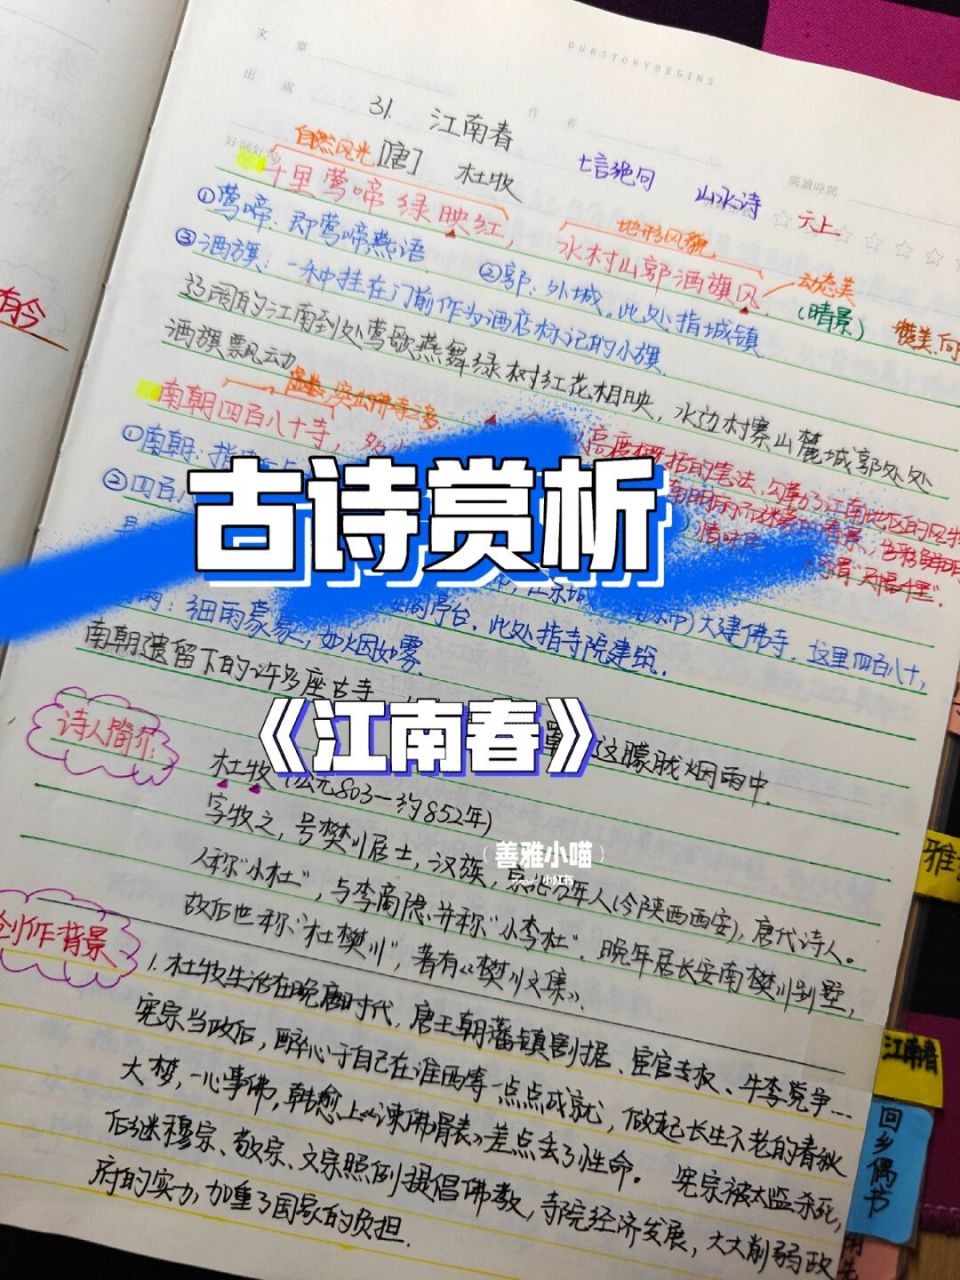 OURSTORYBEGINS
文 章
作 者
出 處
31. 江南春
好詞好句
閱讀時間
自然风光
[唐] 杜牧
七言绝句
山水诗
六上
千里莺啼绿映红，水村山郭酒旗风
地形风貌
动态美
(晴景)
①莺啼：即莺啼燕语
②郭：外城。此处指城镇
赞美.向
③酒旗：一种挂在门前作为酒店标记的小旗
辽阔的江南到处莺歌燕舞绿树红花相映，水边村寨山麓城郭处处
酒旗飘动
虚数，突出佛寺之多
南朝四百八十寺，
以高度概括的笔法，勾草了江南地区的风物
①南朝：指
②四百
古诗赏析
《江南春》
大建佛寺. 这里四百八十，
台. 此处指寺院建筑.
雨：细雨蒙蒙，如烟如雾.
南朝遗留下的许多座古寺
这朦胧烟雨中.
诗人简介
杜牧 (公元803—约852年)
字牧之，号樊川居士，汉族，京兆万年人(今陕西西安)，唐代诗人。
善雅小喵
小红书
人称"小杜"，与李商隐并称"小李杜". 晚年居长安南樊川别墅，
故后世称"杜樊川"，著有《樊川文集》.
创作背景
1. 杜牧生活在晚唐时代，唐王朝藩镇割据、宦官专权、牛李党争...
宪宗当政后，醉心于自己在淮西等一点点成就，做起长生不老的春秋
大梦，一心事佛，韩愈上《谏佛骨表》差点丢了性命。 宪宗被太监杀死，
后继穆宗、敬宗、文宗照例提倡佛教，寺院经济发展，大大削弱政
府的实力，加重了国家的负担.
有今
雅
江南春
回乡偶书